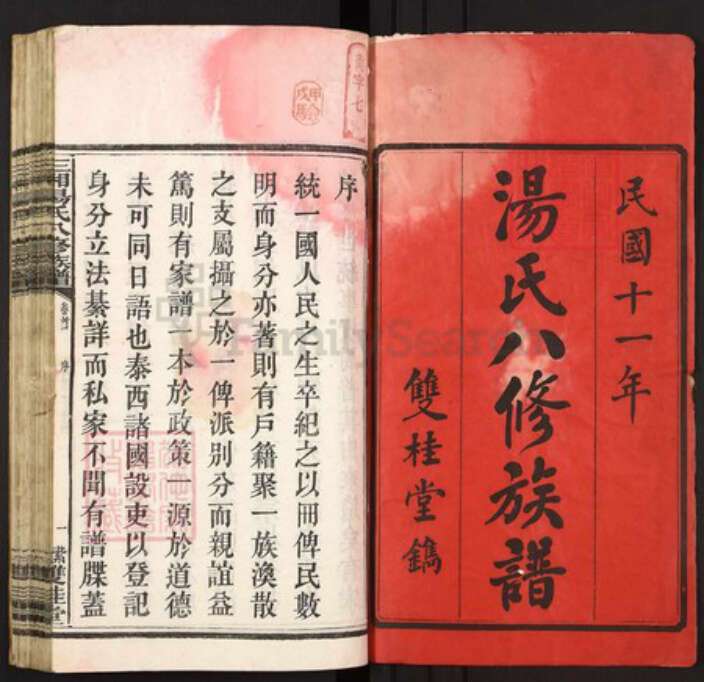 民國十一年
湯氏八修族譜
雙桂堂鐫
序
統一國人民之生卒紀之以冊俾民數
明而身分亦著則有戶籍聚一族渙散
之支屬攝之於一俾派別分而親誼益
篤則有家譜一本於政策一源於道德
未可同日語也泰西諸國設吏以登記
身分立法綦詳而私家不聞有譜牒蓋
湯氏八修族譜
卷首
序
一
雙桂堂
FamilySearch